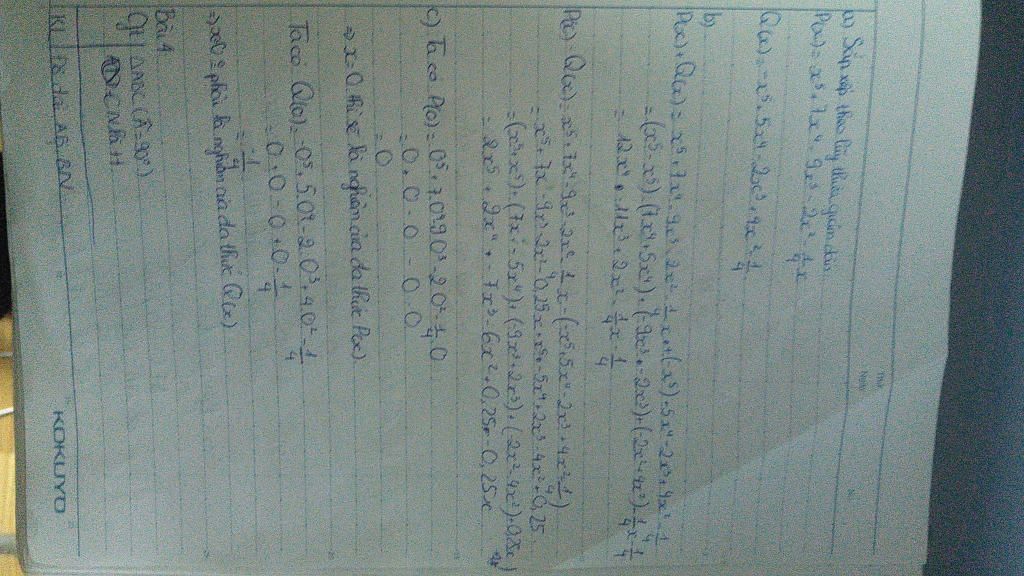 Thứ
Ngày
a) Sắp xếp theo lũy thừa giảm dần
P(x) = x⁵ + 7x⁴ - 9x³ - 2x² - 1/4x
Q(x) = -x⁵ + 5x⁴ - 2x³ + 4x² - 1/4
b)
P(x) + Q(x) = x⁵ + 7x⁴ - 9x³ - 2x² - 1/4x + (-x⁵) + 5x⁴ - 2x³ + 4x² - 1/4
= (x⁵ - x⁵) + (7x⁴ + 5x⁴) + (-9x³ + -2x³) + (-2x² + 4x²) - 1/4x - 1/4
= 12x⁴ + -11x³ + 2x² - 1/4x - 1/4
P(x) - Q(x) = x⁵ + 7x⁴ - 9x³ - 2x² - 1/4x - (-x⁵ + 5x⁴ - 2x³ + 4x² - 1/4)
= x⁵ + 7x⁴ - 9x³ - 2x² - 0,25x + x⁵ + -5x⁴ + 2x³ - 4x² + 0,25
= (x⁵ + x⁵) + (7x⁴ - 5x⁴) + (-9x³ + 2x³) + (-2x² - 4x²) + 0,25x
= 2x⁵ + 2x⁴ + -7x³ - 6x² + 0,25 - 0,25x
c) Ta có P(0) = 0⁵ + 7.0⁴ - 9.0³ - 2.0² - 1/4.0
= 0 + 0 - 0 - 0 - 0
= 0
⇒ x = 0 thì x là nghiệm của đa thức P(x)
Ta có Q(0) = -0⁵ + 5.0⁴ - 2.0³ + 4.0² - 1/4
= 0 + 0 - 0 + 0 - 1/4
= -1/4
⇒ x là nghiệm của đa thức Q(x)
Bài 4
GT ΔABC (Â = 90°)
KL Độ dài AB, BN
KOKUYO